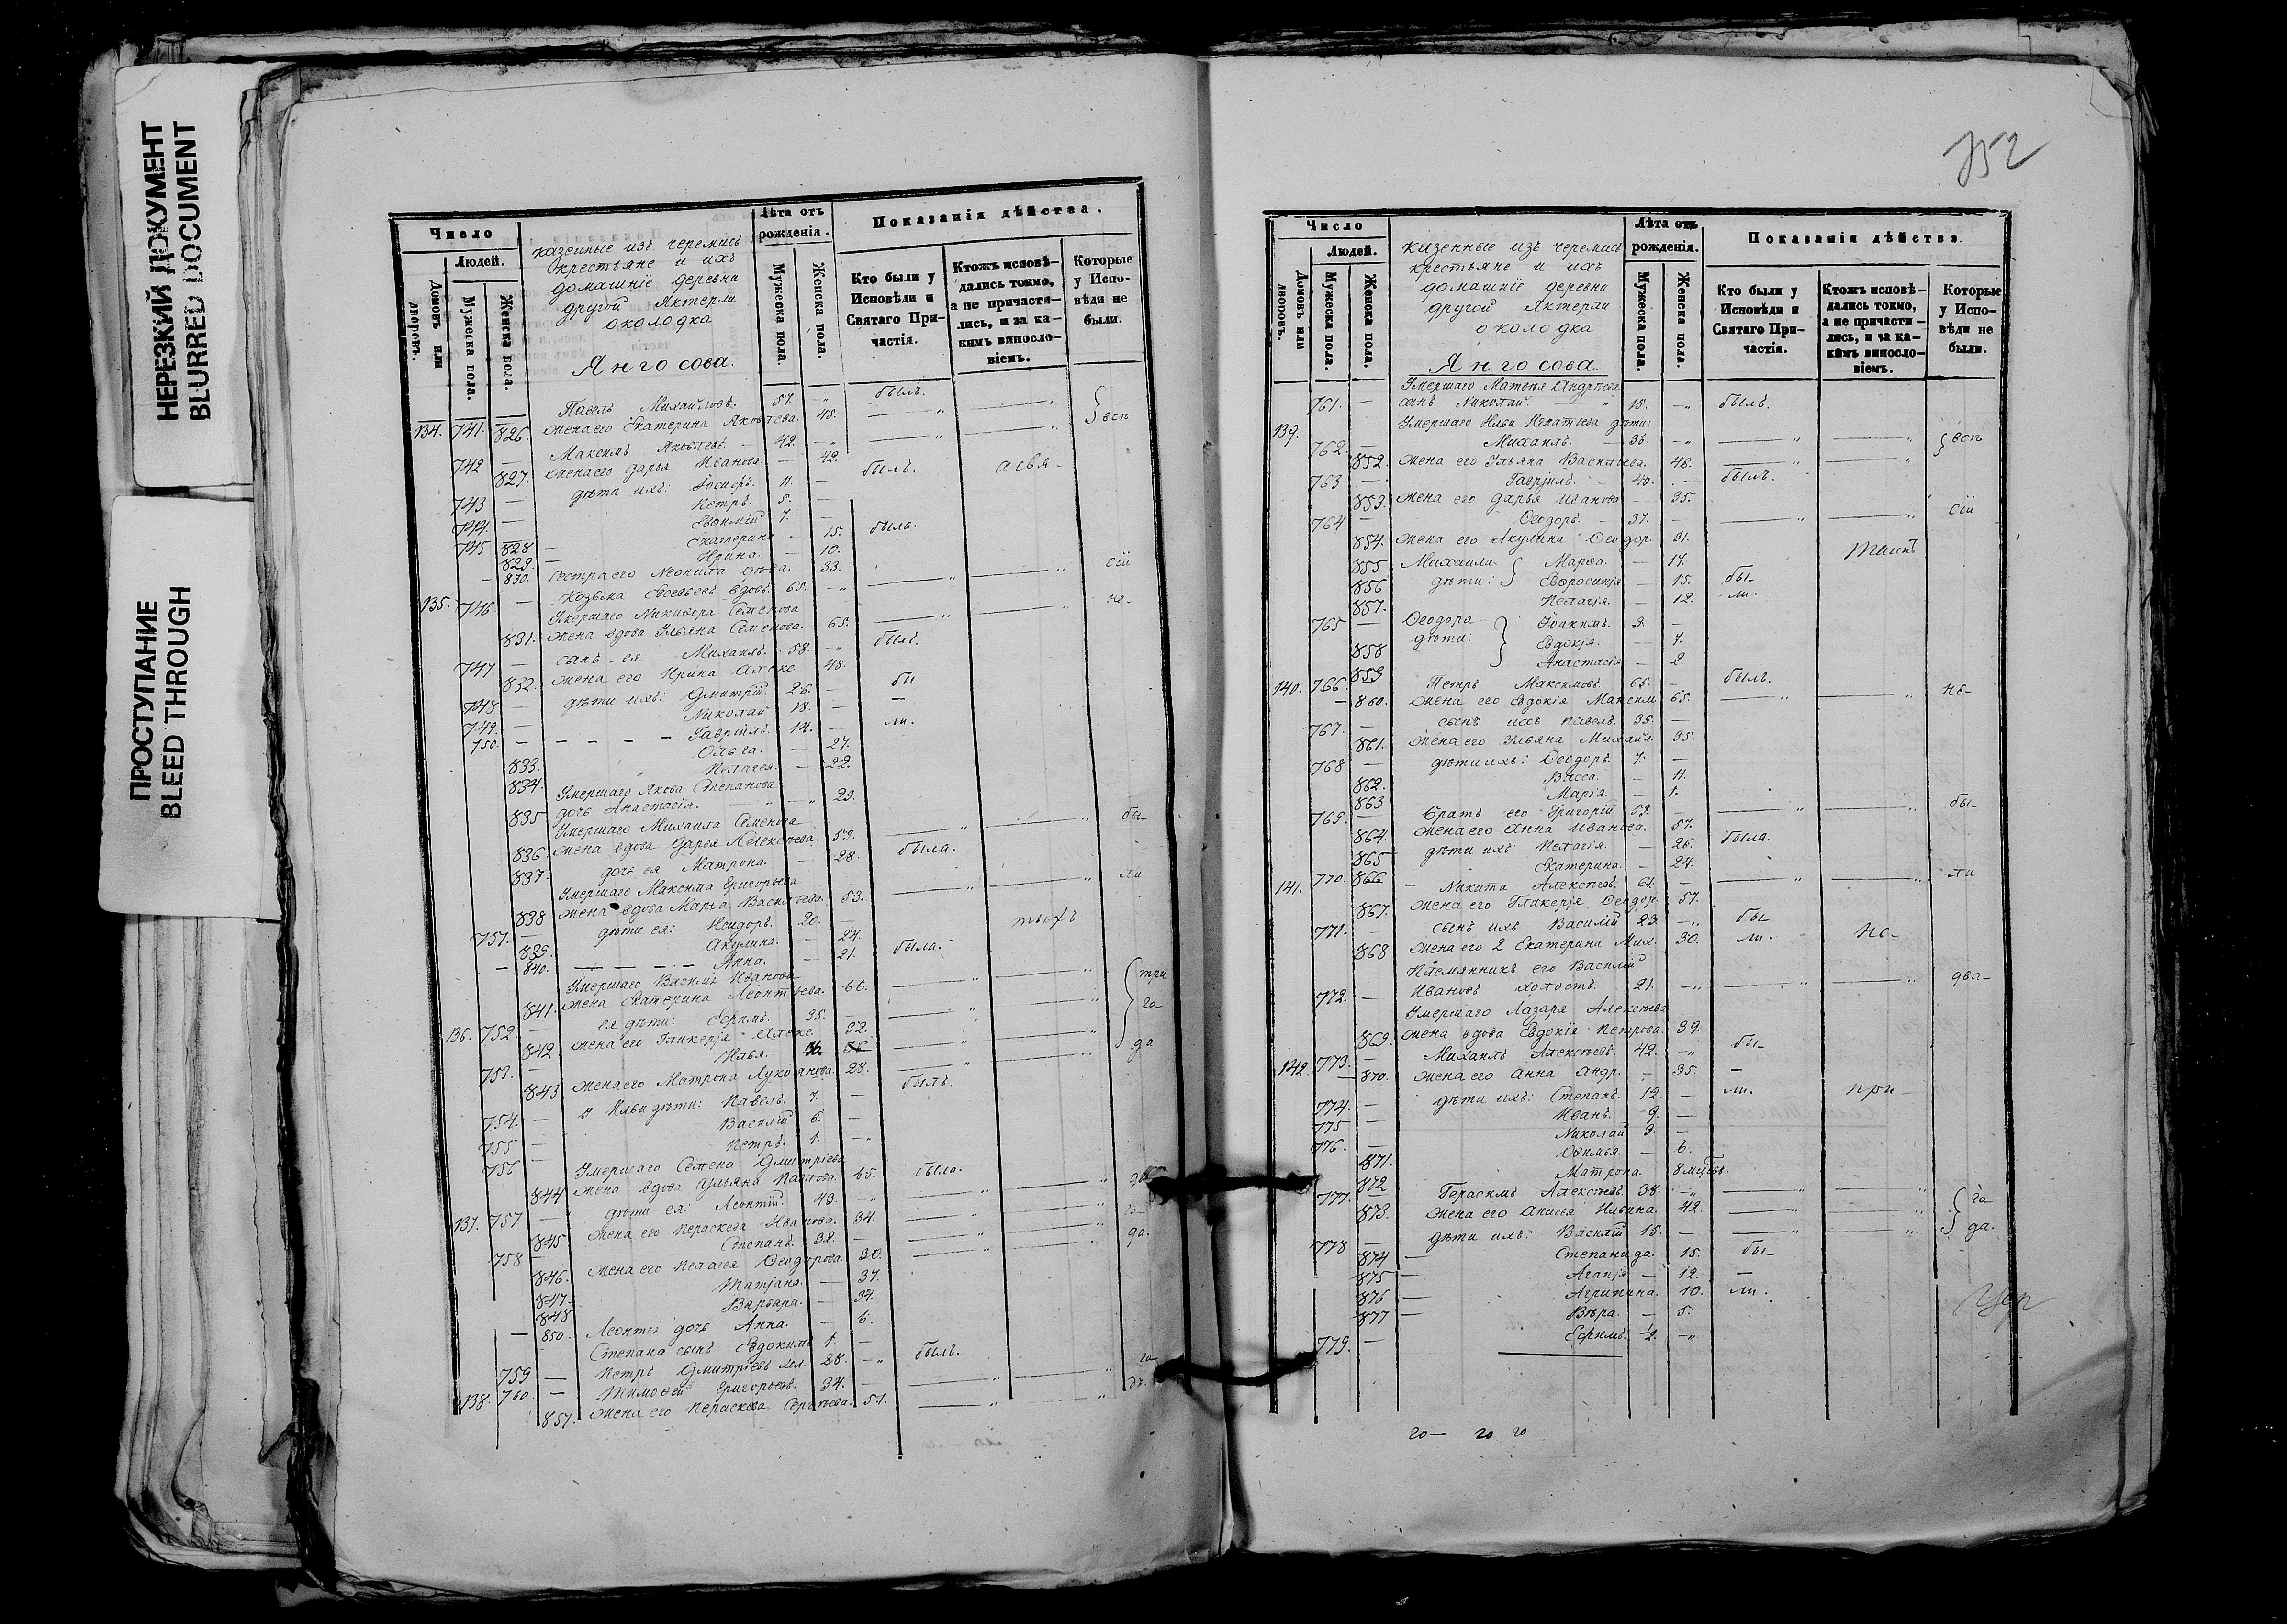 НЕРЕЗКИЙ ДОКУМЕНТ
BLURRED DOCUMENT
ПРОСТУПАНИЕ
BLEED THROUGH
Число
Людей.
Домовъ или дворовъ.
Мужеска пола.
Женска пола.
казенные изъ черемисъ
крестьяне и ихъ
домашніе деревни
другой Яктерли
околодка
Янгосова.
Лѣта отъ рожденія.
Мужеска пола.
Женска пола.
Показанія дѣйства.
Кто были у Исповѣди и Святаго Причастія.
Ктожъ исповѣдались токмо, а не причастились, и за какимъ винословіемъ.
Которые у Исповѣди не были.
134. 741. Павелъ Михайловъ. 57. былъ.
826. жена его Екатерина Яковлева. 45.
742 Максимъ Яковлевъ. 42.
827. жена его Дарья Иванова. 42. былъ.
743 дѣти ихъ: 11.
744. Петръ. 5.
745 Евѳимій 7.
828 Екатерина 15. была.
829. Ирина. 10.
830. сестра его Неонила дѣва. 33. сіи
135. 746. Козьма вдовъ. 65.
Умершаго Никифора Семенова не-
831. жена вдова Ульяна Семенова. 65.
747. сынъ ея Михаилъ. 58. былъ.
832. жена его Ирина Алекс. 48.
748 дѣти ихъ: Дмитрій. 26. бы
749. Николай 18.
750. Гавріилъ. 14. ли.
833. Ольга. 27.
834. Пелагея. 22.
Умершаго Якова Степанова
835 дочь Анастасія. 29.
Умершаго Михаила Семенова
836 жена вдова Дарья Алексѣева. 59. бы-
837. дочь ея Матрона. 28. была.
Умершаго Максима Григорьева
838 жена вдова Марѳа Васильева. 53. ли
751. дѣти ея: Исидоръ. 20.
839. Акулина. 24.
840. Анна. 21. была.
Умершаго Василья Иванова
841. жена Екатерина Леонтьева. 66.
136. 752. ея дѣти: Ефимъ. 35.
842 жена его Гликерія Алекс. 32.
753. Илья.
843 жена его Матрона Лукоянова. 28. да
754. Ильи дѣти: Павелъ. 7. былъ.
755 Василій 6.
756 Петръ. 1.
Умершаго Семена Дмитріева
844 жена вдова Ульяна Павлова. 65. была.
137. 757 дѣти ея: Леонтій. 43.
845 жена его Пераскева Иванова. 34.
758 Степанъ. 32. да.
846. жена его Пелагея Ѳеодорова. 30.
847. Татіана. 37.
848 Варвара. 34.
850. Леонтія дочь Анна. 6.
Степана сынъ Евдокимъ 1.
759 Петръ Дмитріевъ хол. 28. былъ.
138. 760. Тимоѳей Григорьевъ. 34.
851. жена его Пераскева Сергѣева. 51.
352
Число
Людей.
Домовъ или дворовъ.
Мужеска пола.
Женска пола.
казенные изъ черемисъ
крестьяне и ихъ
домашніе деревни
другой Яктерли
околодка
Янгосова.
Лѣта отъ рожденія.
Мужеска пола.
Женска пола.
Показанія дѣйства.
Кто были у Исповѣди и Святаго Причастія.
Ктожъ исповѣдались токмо, а не причастились, и за какимъ винословіемъ.
Которые у Исповѣди не были.
Умершаго Матвѣя Андреева
761. сынъ Николай. 15. былъ.
139. Умершаго Ильи Игнатьева дѣти:
762. Михаилъ. 38.
852. жена его Ульяна Васильева. 46.
763 Гавріилъ. 40. былъ.
853. жена его Дарья Иванова 35.
764 Ѳеодоръ. 37. сіи
854. жена его Акулина Ѳеодор. 31.
855 Михаила Марѳа. 17.
856 дѣти: Евфросинія 15. бы-
857. Пелагія. 12. ли.
765 Ѳеодора Іоакимъ. 9.
858 дѣти: Евдокія. 7.
859 Анастасія 2.
140. 766. Петръ Максимовъ 65. былъ.
860. жена его Евдокія Максим 65. не-
767. сынъ ихъ Павелъ. 35.
861. жена его Ульяна Михайл 35.
768 дѣти ихъ: Ѳеодоръ 7.
862. Васса. 11.
863 Марія. 1.
769. братъ его Григорій 59. бы-
864. жена его Анна Иванова. 57.
865 дѣти ихъ: Пелагія. 26. была.
866 Екатерина. 24.
141. 770. Никита Алексѣевъ. 61. ли
867. жена его Гликерія Ѳеодор. 57.
771. сынъ ихъ Василій 23 бы-
868 жена его 2 Екатерина Мих. 30. ли. не-
Племянникъ его Василій
772. Ивановъ холостъ. 21. два-
Умершаго Лазаря Алексѣева
869. жена вдова Евдокія Петрова. 39.
142. 773. Михаилъ Алексѣевъ. 42. бы-
870. жена его Анна Андр. 35.
774. дѣти ихъ: Степанъ. 12. ли. при
775 Иванъ. 9.
776. Николай 3.
871. Ѳфимья. 6.
872 Матрона. 8
777. Герасимъ Алексѣевъ. 38.
873. жена его Анисья Ильина. 42.
778 дѣти ихъ: Василій 15. да.
874 Степанида. 15. бы-
875 Агапія 12.
876 Агрипина. 10. ли.
877 Вѣра. 5.
779. Ефимъ. ½.
го- го го